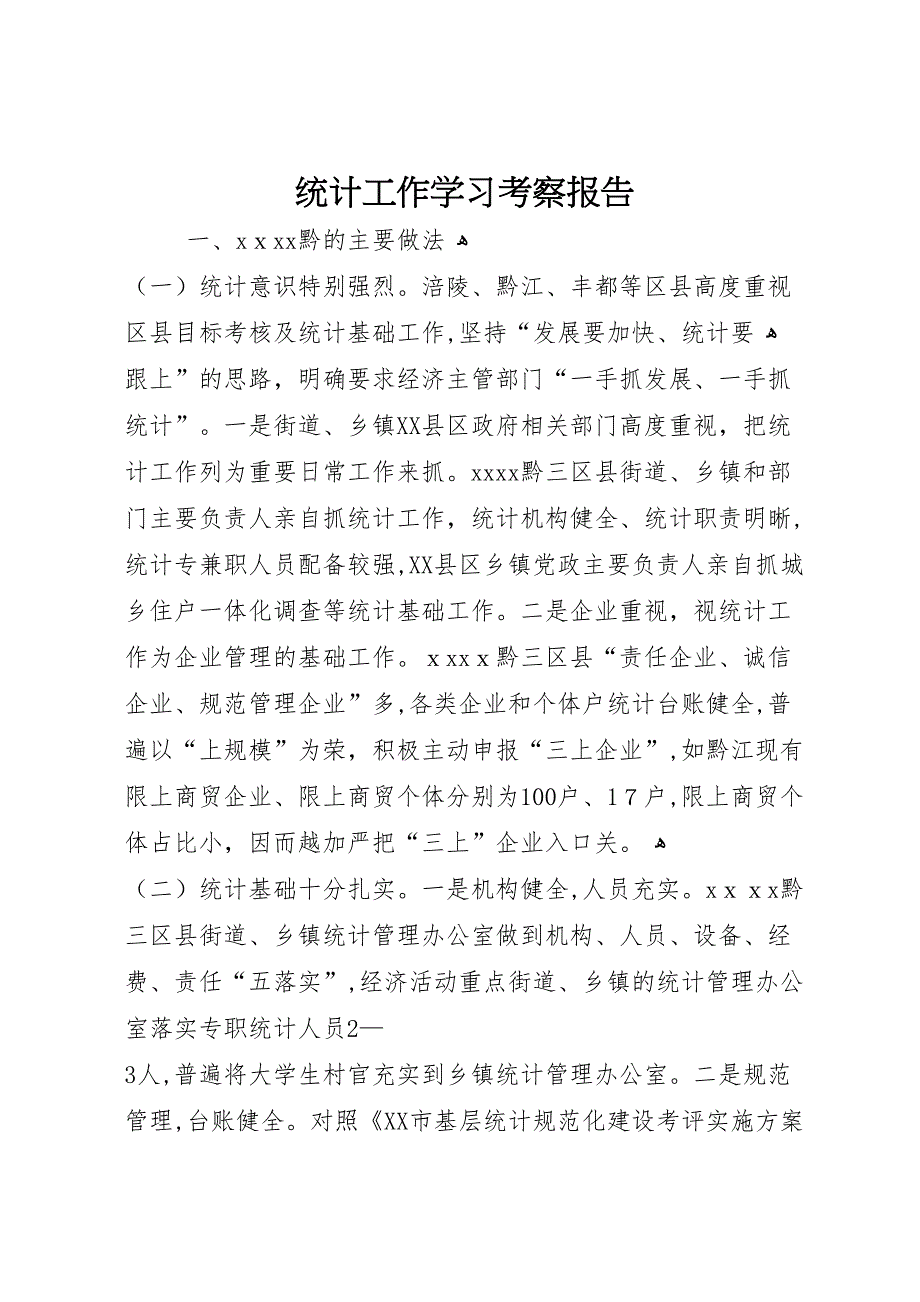 统计工作学习考察报告
一、xｘxx黔的主要做法 ﻬ
（一）统计意识特别强烈。涪陵、黔江、丰都等区县高度重视
区县目标考核及统计基础工作,坚持“发展要加快、统计要 ﻬ
跟上”的思路，明确要求经济主管部门“一手抓发展、一手抓
统计”。一是街道、乡镇XX县区政府相关部门高度重视，把统
计工作列为重要日常工作来抓。xxxx黔三区县街道、乡镇和部
门主要负责人亲自抓统计工作，统计机构健全、统计职责明晰,
统计专兼职人员配备较强,XX县区乡镇党政主要负责人亲自抓城
乡住户一体化调查等统计基础工作。二是企业重视，视统计工
作为企业管理的基础工作。ｘxxｘ黔三区县“责任企业、诚信
企业、规范管理企业”多,各类企业和个体户统计台账健全,普
遍以“上规模”为荣，积极主动申报“三上企业”,如黔江现有
限上商贸企业、限上商贸个体分别为100户、1７户,限上商贸个
体占比小，因而越加严把“三上”企业入口关。 ﻬ
（二）统计基础十分扎实。一是机构健全,人员充实。xｘxx黔
三区县街道、乡镇统计管理办公室做到机构、人员、设备、经
费、责任“五落实”,经济活动重点街道、乡镇的统计管理办公
室落实专职统计人员2—
3人,普遍将大学生村官充实到乡镇统计管理办公室。二是规范
管理,台账健全。对照《XX市基层统计规范化建设考评实施方案